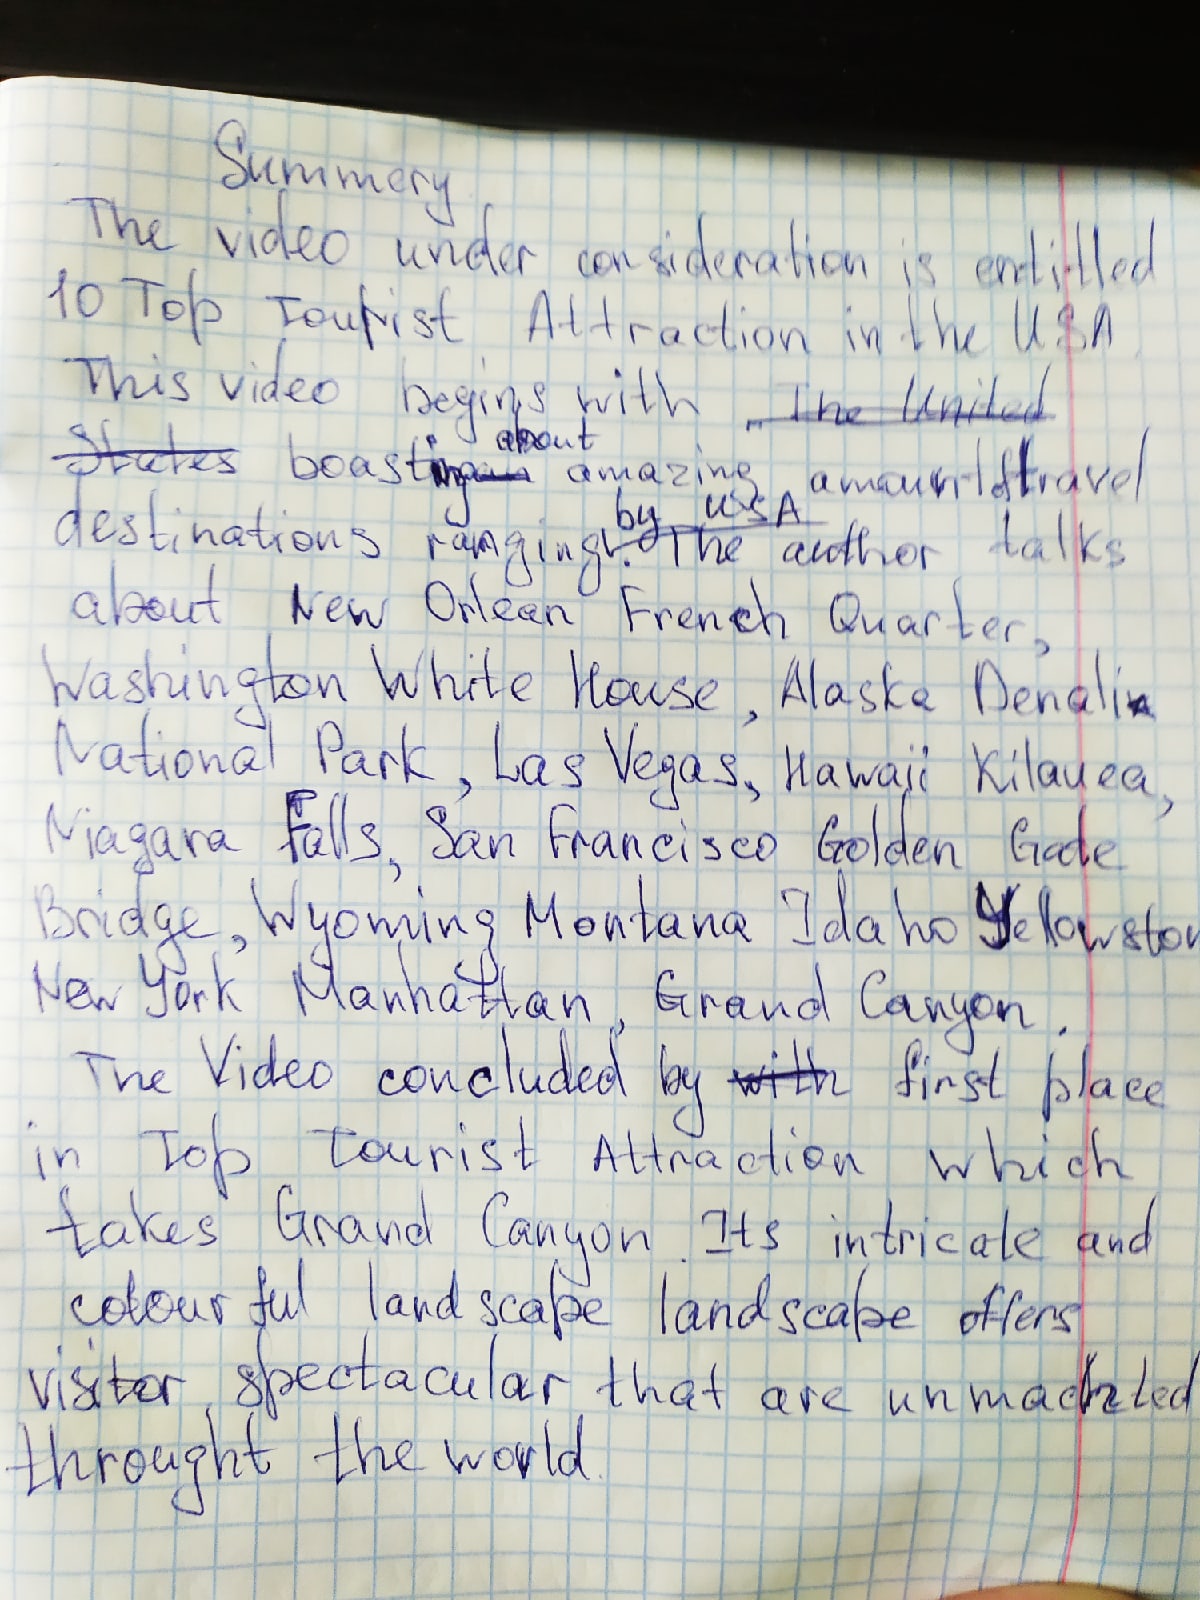 Summery
The video under consideration is entitled
10 Top Tourist Attraction in the USA
This video begins with The United
States boasting about amazing amount of travel
destinations ranging by USA. The author talks
about New Orlean French Quarter,
Washington White House, Alaska Denali
National Park, Las Vegas, Hawaii Kilauea,
Niagara Falls, San Francisco Golden Gate
Bridge, Wyoming Montana Idaho Yellowston
New York Manhattan, Grand Canyon.
The Video concluded by with first place
in Top Tourist Attraction which
takes Grand Canyon. Its intricate and
colourful landscape landscape offers
visitor spectacular that are unmachted
throught the world.